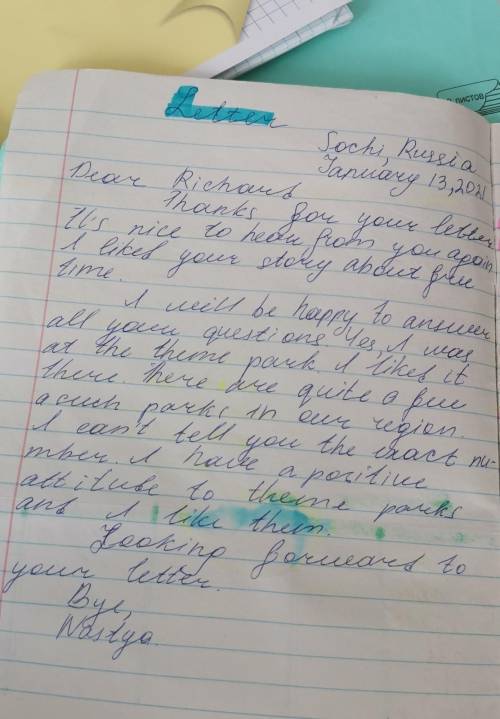 Letter
листов
Sochi, Russia
January 13, 2021
Dear Richard
Thanks for your letter.
It's nice to hear from you again.
I liked your story about free
time.
I will be happy to answer
all your questions. Yes, I was
at the theme park. I liked it
there. There are quite a few
asuch parks in our region.
I can't tell you the exact nu-
mber. I have a positive
attitude to theme parks
and I like them.
Looking forward to
your letter.
Bye,
Nastya.